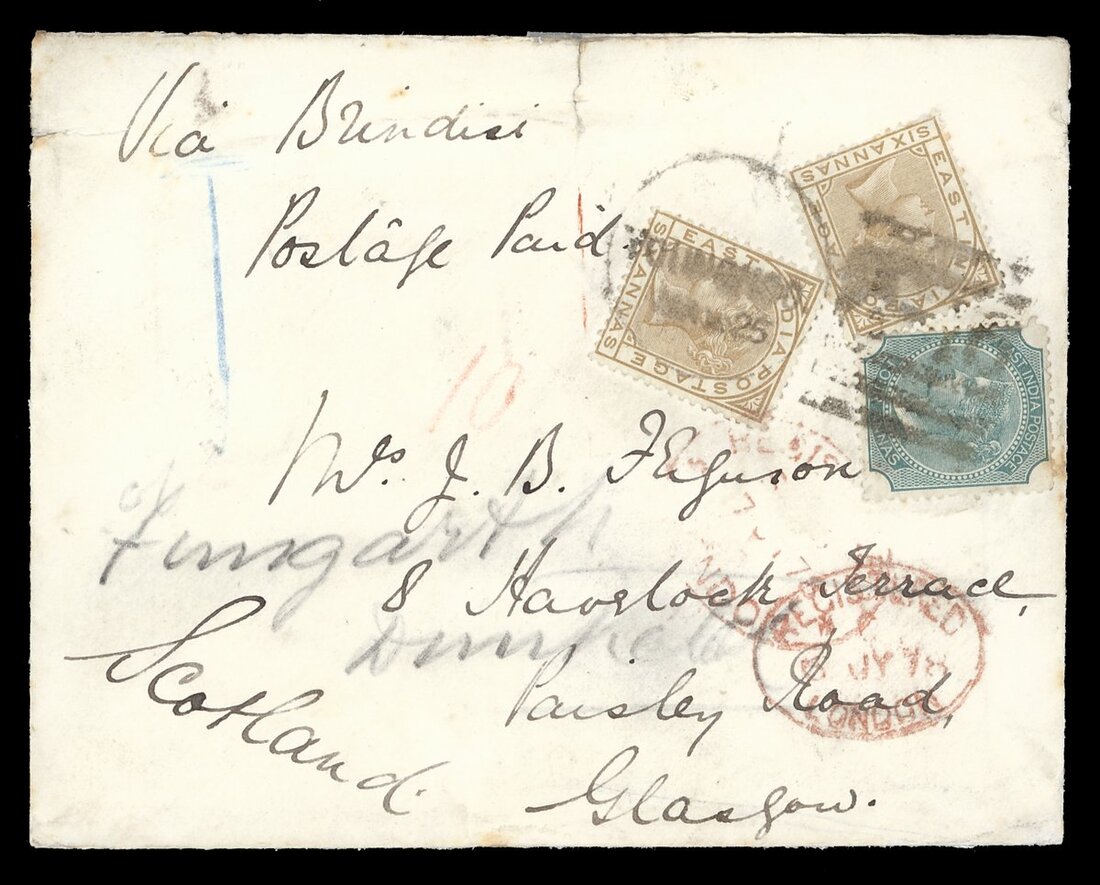 Via Brindisi
Postage Paid.
SIX ANNAS EAST
SIX ANNAS EAST INDIA POSTAGE
25
EAST INDIA POSTAGE
ANNAS
10
Mrs. J. B. Ferguson
8 Havelock Terrace,
Paisley Road,
Glasgow.
Scotland.
REGISTERED
JY 78
LONDON